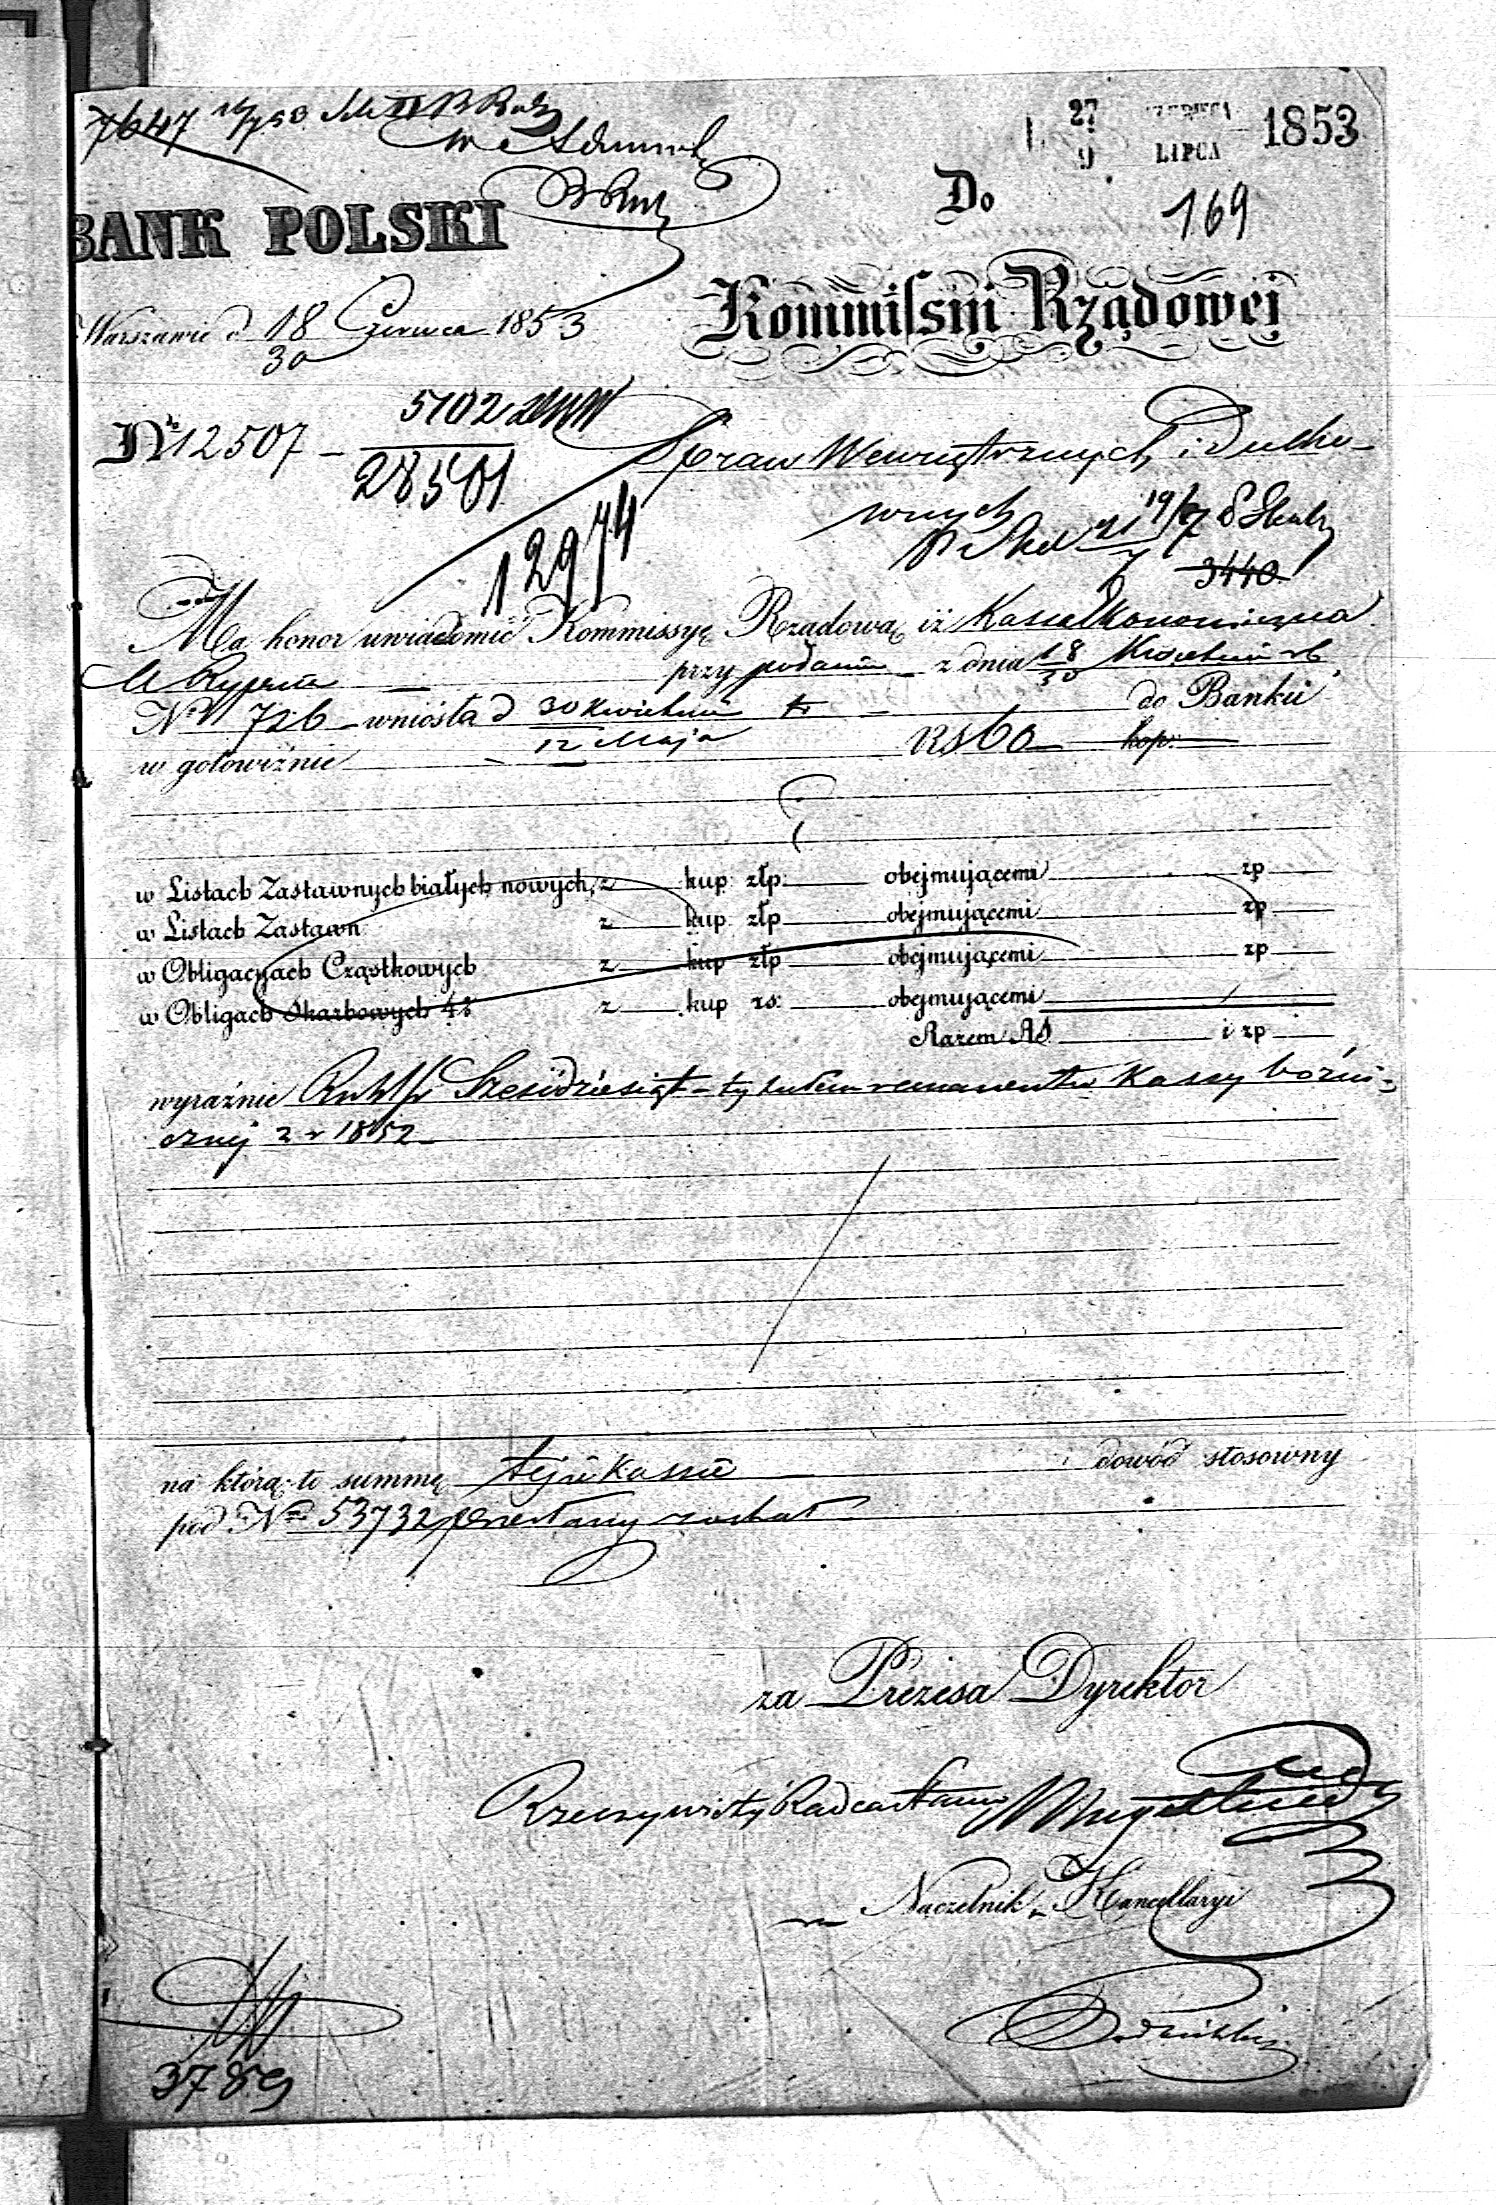 7647
27 CZERWCA
9 LIPCA 1853
Do
169
BANK POLSKI
Kommissyi Rządowej
Warszawie d 18 Czerwca 1853
30
5102
№ 12507 —
28501
Spraw Wewnętrznych i Ducho-
wnych
12974
3440
Ma honor uwiadomić Kommissyę Rządową iż Kassa Ekonomiczna
M Rypina — przy podaniu z dnia 18 Kwietnia rb
30
№ 726 wniosła d 30 Kwietnia do Banku
12 Maja
w gotowiźnie RS 60 kop:
w Listach Zastawnych białych nowych, z kup: złp: obejmującemi zp
w Listach Zastawn z kup: złp obejmującemi zp
w Obligacyach Cząstkowych z kup złp obejmującemi zp
w Obligach Skarbowych 4% z kup rs: obejmującemi
Razem RS i zp
wyraźnie Rubsr Sześćdziesiąt tytułem remanentu Kassy bóźni-
cznej z r 1852
na którą to summę tejże Kassie dowód stosowny
pod № 53732 przesłany został
za Prezesa Dyrektor
Rzeczywisty Radca Stanu
Naczelnik Kancellaryi
3789